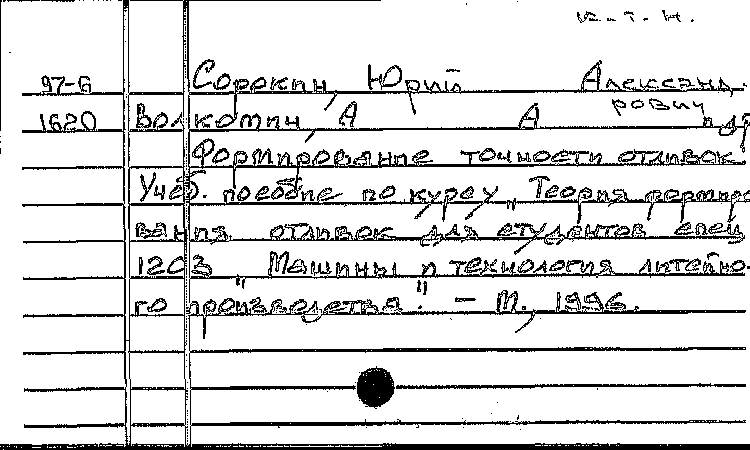 к.т.н.
97-6 Сорокин, Юрий Александ-
рович
1620 Волкомич, А А
Формирование точности отливок.
Учеб. пособие по курсу „Теория формиро
вания отливок для студентов спец
1203 „Машины и технология литейно-
го производства". – М., 1996.